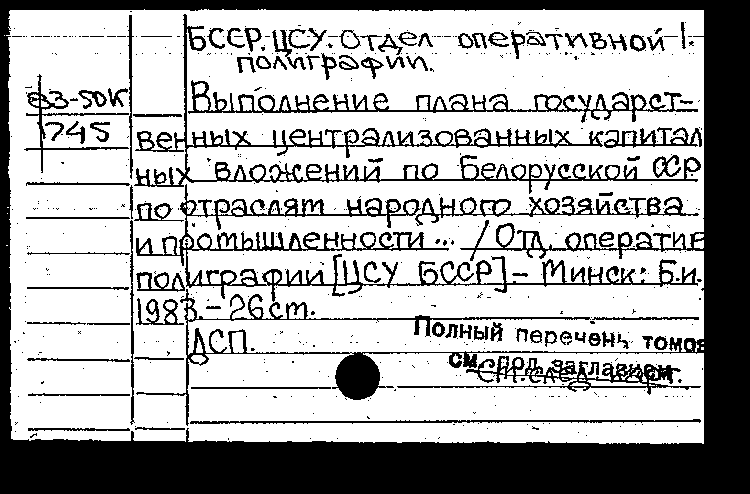 БССР. ЦСУ. Отдел оперативной 1.
полиграфии.
83-50К
1745
Выполнение плана государст-
венных централизованных капитал
ных вложений по Белорусской ССР
по отраслям народного хозяйства
и промышленности... / Отд. оператив
полиграфии [ЦСУ БССР] – Минск: Б.и.,
1983. – 26 ст.
ДСП.
Полный перечень томов
см. под заглавием
См. след. карт.